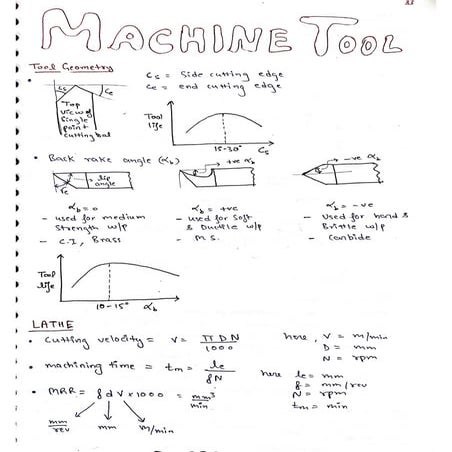 MACHINE TOOL
Tool Geometry
Cs = Side cutting edge
Ce = end cutting edge
Cs
Ce
Top
view of
Single
point
cutting tool
Tool
life
15-30°
Cs
• Back rake angle (αb)
lip
angle
+ve αb
-ve αb
αb = 0
- used for medium
Strength w/p
- C.I, Brass
αb = +ve
- used for Soft
& Ductile w/p
- M.S.
αb = -ve
- Used for hard &
Brittle w/p
- Carbide
Tool
life
10-15°
αb
LATHE
• Cutting velocity = V = πDN/1000
here, V = m/min
D = mm
N = rpm
• machining time = tm = le/fN
here le = mm
f = mm/rev
N = rpm
tm = min
• MRR = f d V × 1000 = mm³/min
mm/rev
mm
m/min